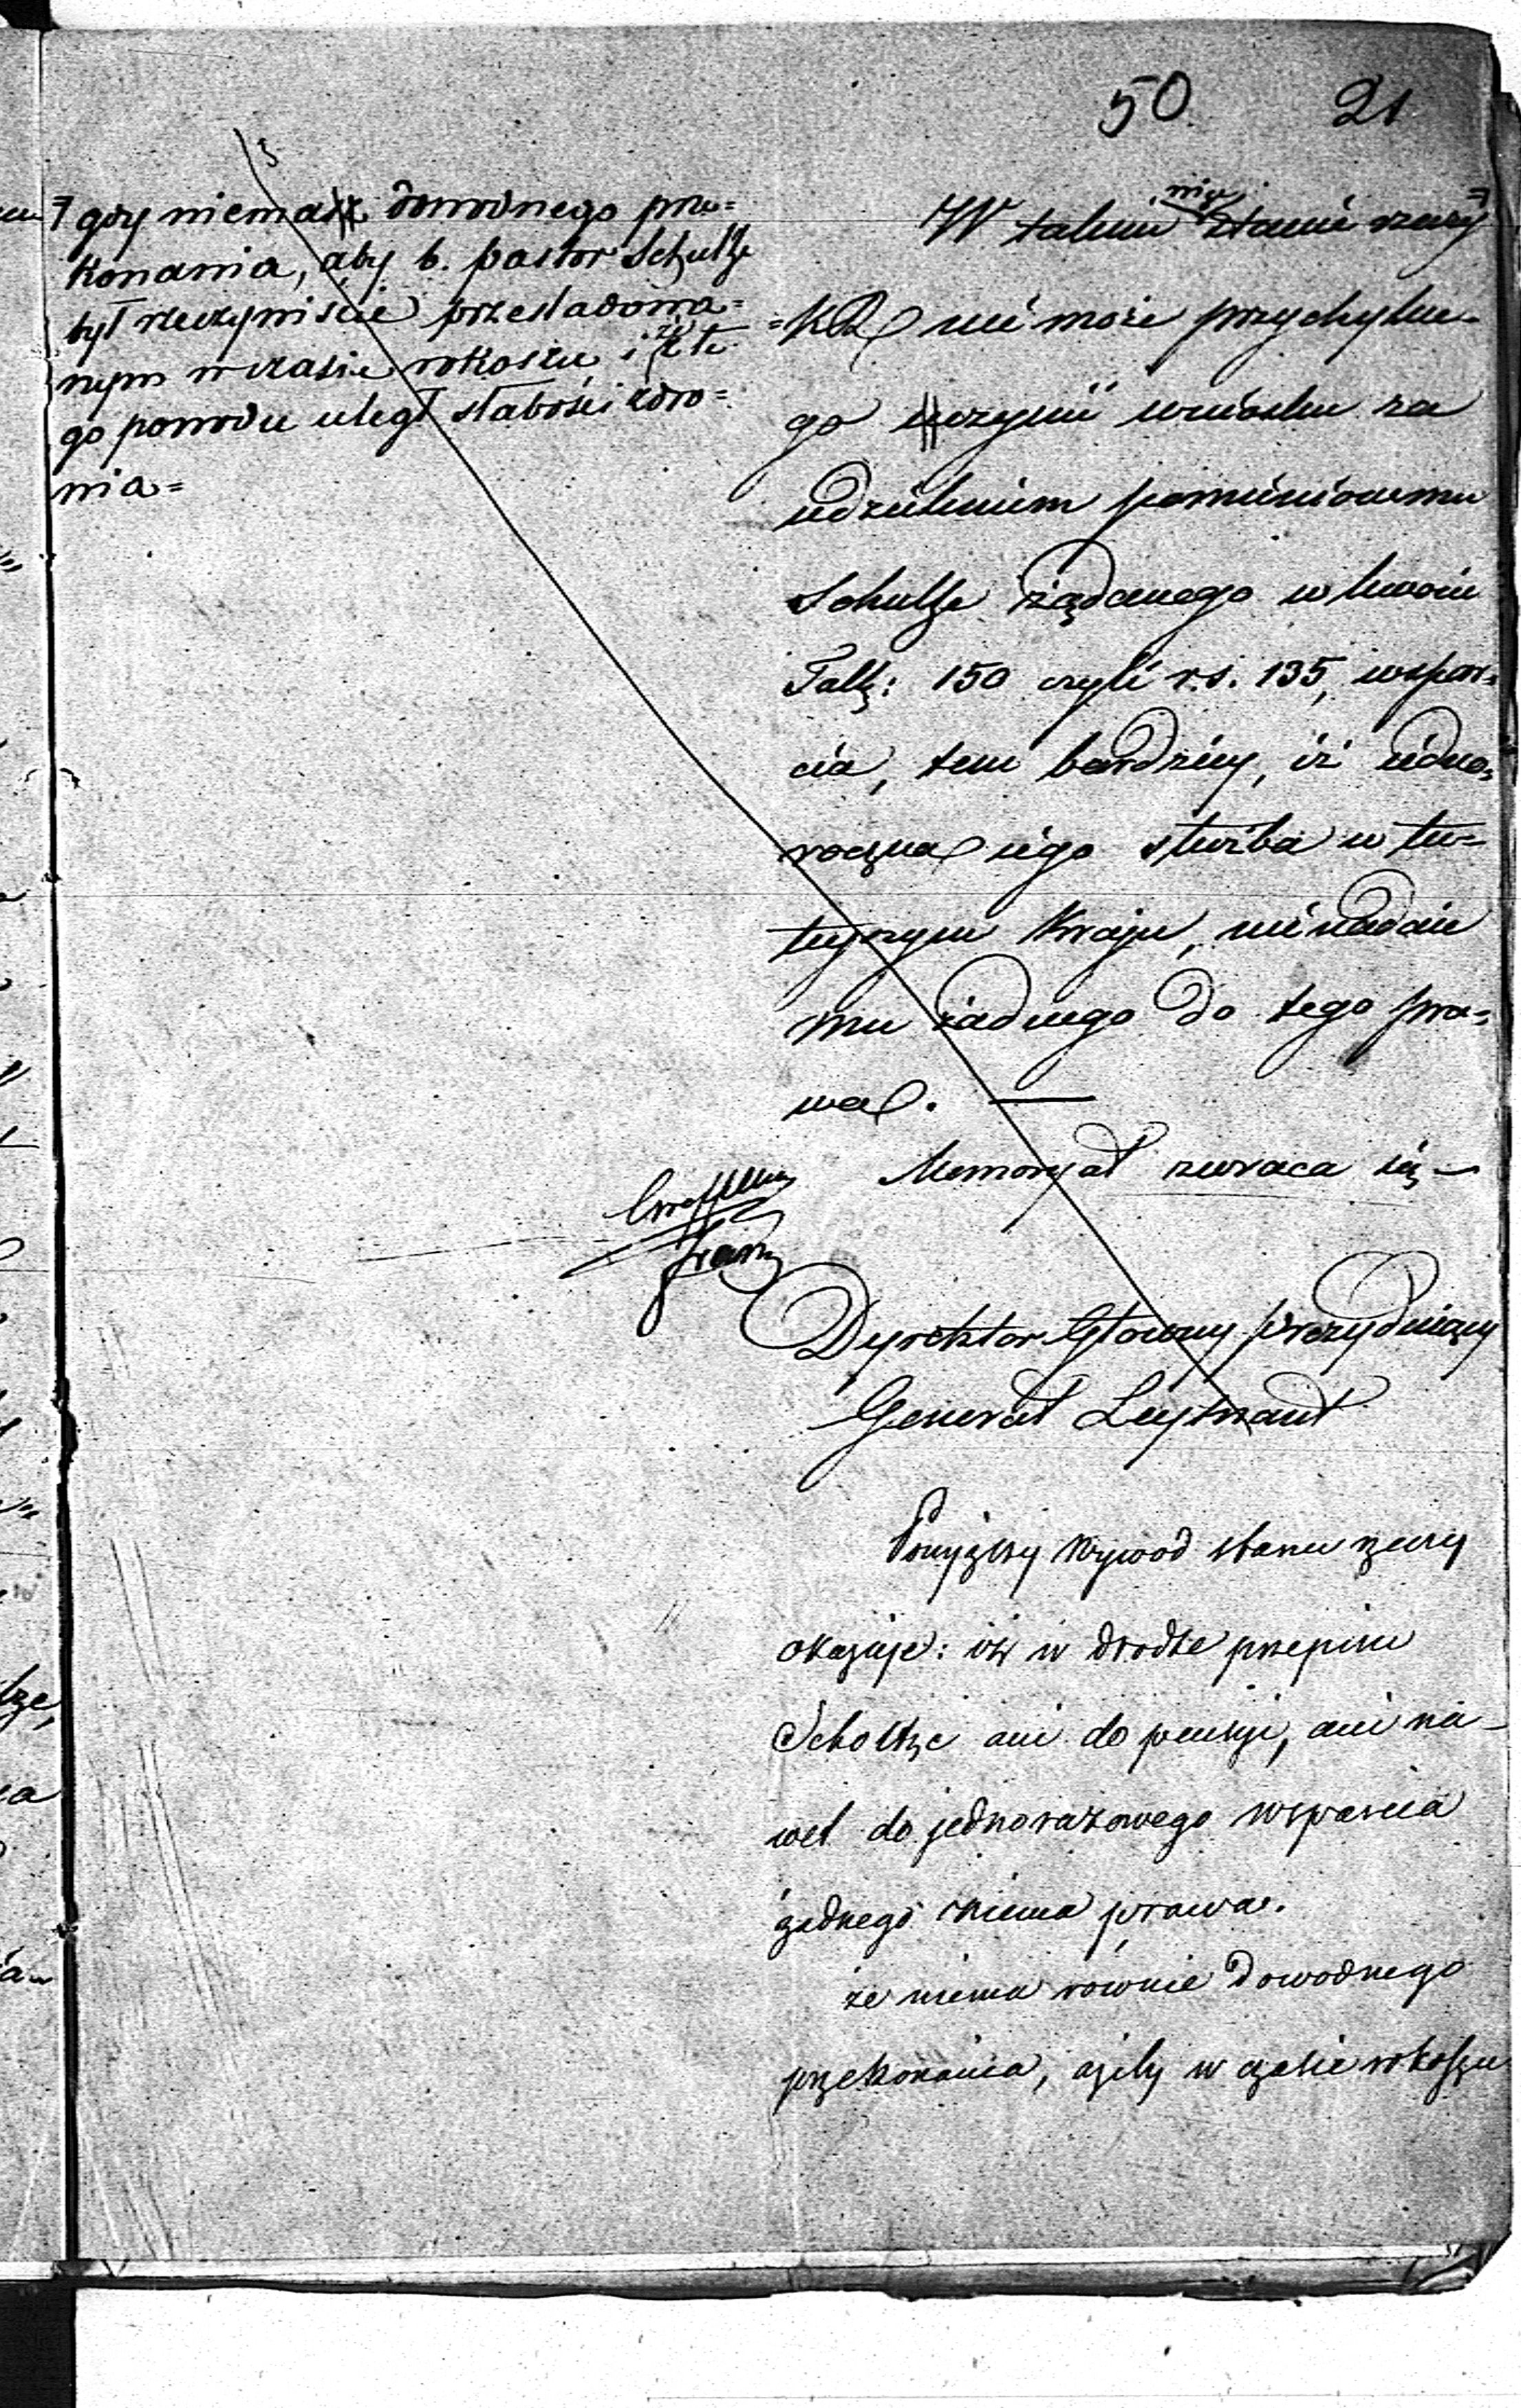 50 21
⊤ gdy niemasz dowodnego prze=
konania, aby b. pastor Schultze
był rzeczywiście prześladowa=
nym w czasie rokoszu i że z te
go powodu uległ słabości zdro=
nia=
W takim stanie rzeczy
=KR nie może przychylne=
go uczynić wniosku za
udzieleniem pomienionemu
Schultze żądanego w kwocie
Talk: 150 czyli r.s. 135, wspar=
cia, tem bardziey, iż iedno=
roczna iego służba w tu=
teyszym Kraju, nie nadaie
mu żadnego do tego pra=
wa. —
Memoryał zwraca się —
Dyrektor Główny prezyduiący
Generał Leytnant
Powyższy wywód stanu rzeczy
okazuje: iż w drodze przepisu
Scholtze ani do pensyi, ani na-
wet do jednorazowego wsparcia
żadnego niema prawa.
że niema równie dowodnego
przekonania, ażeby w czasie rokoszu